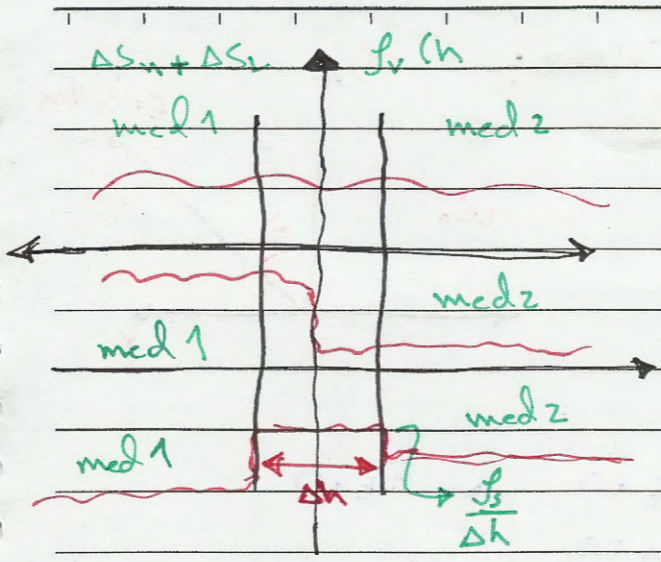 ΔSₙ + ΔS_L ρᵥ (h
med 1 med 2
med 2
med 1
med 2
med 1
Δh
ρₛ
Δh